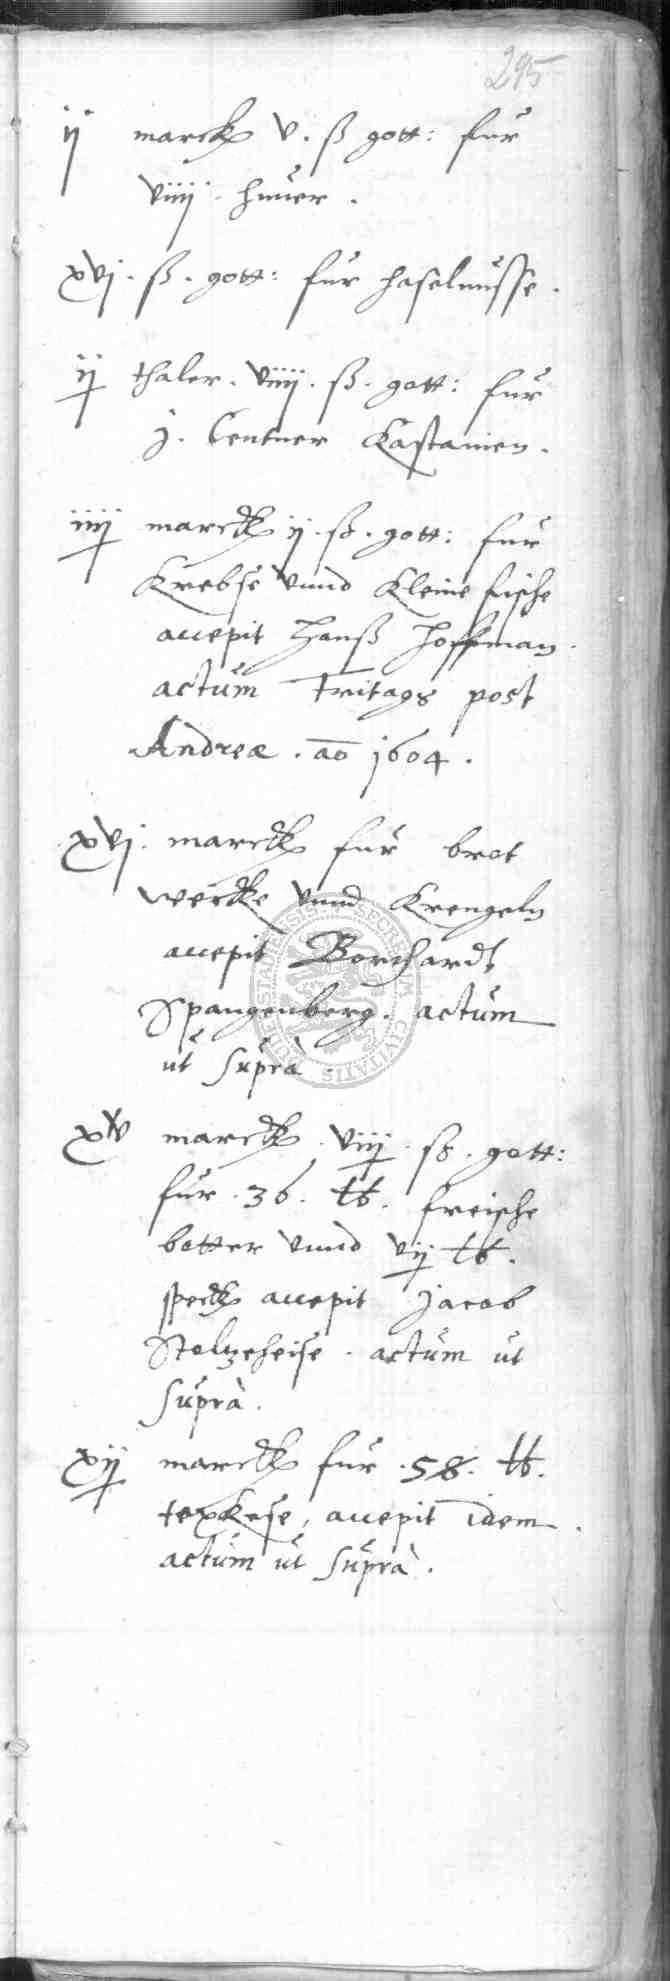 295
ij marck v. ß gott: fur
viiij. huner.
xvj. ß. gott: fur haselnusse.
ij thaler. viiij. ß. gott: fur
j. Centner Kastanien.
iiij marck ij. ß. gott: fur
Krebse vnnd Kleine fische
accepit Hanß Hoffman.
actum Fritags post
Andreæ. ao 1604.
xvj. marck fur brot
wercke vnnd Krengeln
accepit Borchardt
Spangenberg. actum
ut suprà.
xv marck. viij. ß. gott:
fur. 36. lb. freische
botter vnnd vij lb.
speck accepit Jacob
Stoltzeheise. actum ut
suprà.
xij marck fur. 58. lb.
texkese, accepit idem.
actum ut suprà.
SECRETUM CIVITATIS